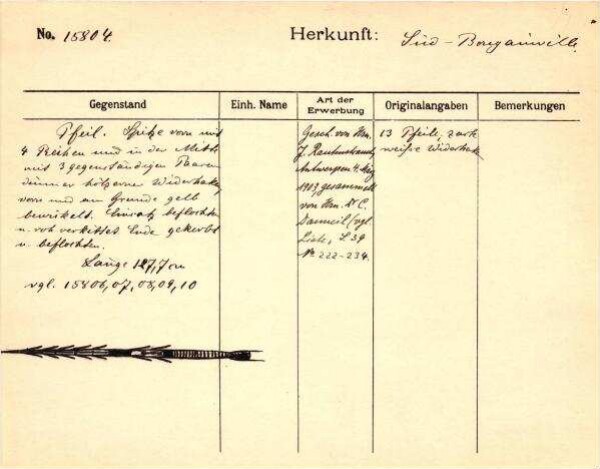 No. 15804.
Herkunft: Süd-Bougainville
Gegenstand
Einh. Name
Art der Erwerbung
Originalangaben
Bemerkungen
Pfeil. Spitze vorn mit
4 Reihen und in der Mitte
mit 3 gegenständigen Paaren
dünner hölzerner Widerhaken,
vorn und am Grunde gelb
bewickelt. beflochten
u. rot verkittet Ende gekerbt
u. beflochten.
Länge 127,7 cm
vgl. 15806, 07, 08, 09, 10
Gesch. von Hrn.
J.
Antwerpen
1913 gesammelt
von Hrn. Dr C.
(vgl.
Liste, S 39
No 222-234.
13 Pfeile, zark
weisse Widerhak